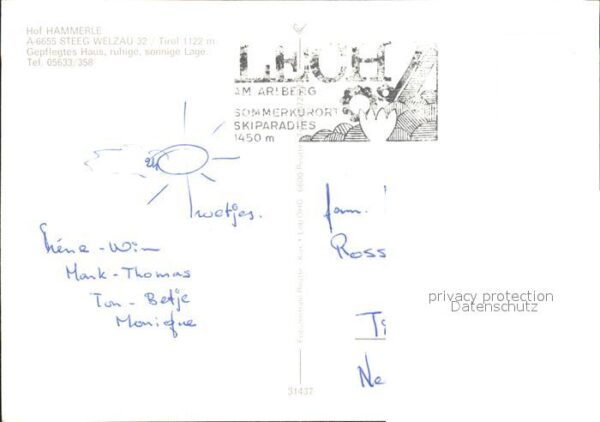 Hof HAMMERLE
A-6655 STEEG WELZAU 32 / Tirol 1122 m
Gepflegtes Haus, ruhige, sonnige Lage.
Tel. 05633/358
LECH
AM ARLBERG
SOMMERKURORT
SKIPARADIES
1450 m
Groetjes.
Iréne - Wim
Mark - Thomas
Ton - Betje
Monique
fam.
Ross
Ti
Ne
privacy protection
Datenschutz
31437